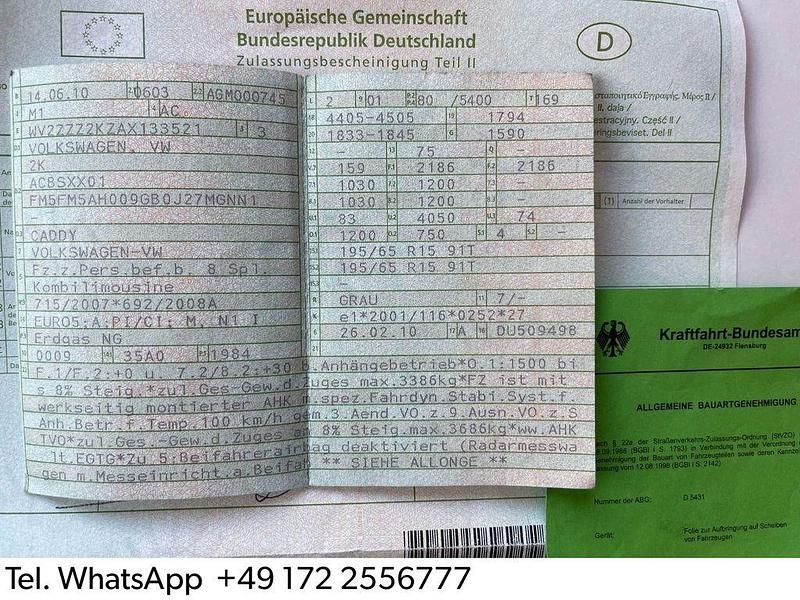 Europäische Gemeinschaft
Bundesrepublik Deutschland
Zulassungsbescheinigung Teil II
D
II. daļa /
Część II /
Del II
(1) Anzahl der Vorhalter:
14.06.10 0603 AGM000745
M1 AC
WV2ZZZ2KZAX133521 3
VOLKSWAGEN, VW
2K
ACBSXX01
FM5FM5AH009GB0J27MGNN1
–
CADDY
VOLKSWAGEN-VW
Fz.z.Pers.bef.b. 8 Spl.
Kombilimousine
715/2007*692/2008A
EURO5;A;PI/CI; M, N1 I
Erdgas NG
0009 14 35A0 P.1 1984
L 2 9 01 80 /5400 T 169
18 4405-4505 19 1794
20 1833-1845 G 1590
12 – 13 75 Q –
V.7 159 F.1 2186 F.2 2186
7.1 1030 7.2 1200 7.3 –
8.1 1030 8.2 1200 8.3 –
U.1 83 U.2 4050 U.3 74
O.1 1200 O.2 750 S.1 4 S.2 –
195/65 R15 91T
195/65 R15 91T
–
R GRAU 11 7/–
K e1*2001/116*0252*27
6 26.02.10 17 A 16 DU509498
21
F.1/F.2:+0 u. 7.2/8.2:+30 b.Anhängebetrieb*O.1:1500 bi
s 8% Steig.*zul.Ges-Gew.d.Zuges max.3386kg*FZ ist mit
werkseitig montierter AHK m.spez.Fahrdyn.Stabi.Syst.f.
Anh.Betr.f.Temp.100 km/h gem.3.Aend.VO.z.9.Ausn.VO.z.S
TVO*zul.Ges.-Gew.d.Zuges am 8% Steig.max.3686kg*ww.AHK
lt.EGTG*Zu 5:Beifahrerairbag deaktiviert (Radarmesswa
gen m.Messeinricht.a.Beifah ** SIEHE ALLONGE **
Kraftfahrt-Bundesam
DE-24932 Flensburg
ALLGEMEINE BAUARTGENEHMIGUNG
§ 22a der Straßenverkehrs-Zulassungs-Ordnung (StVZO)
(BGBl I S. 1793) in Verbindung mit der Verordnung
der Bauart von Fahrzeugteilen sowie deren
vom 12.08.1998 (BGBl I S. 2142)
Nummer der ABG: D 5431
Gerät: Folie zur Aufbringung auf Scheiben
von Fahrzeugen
Tel. WhatsApp +49 172 2556777